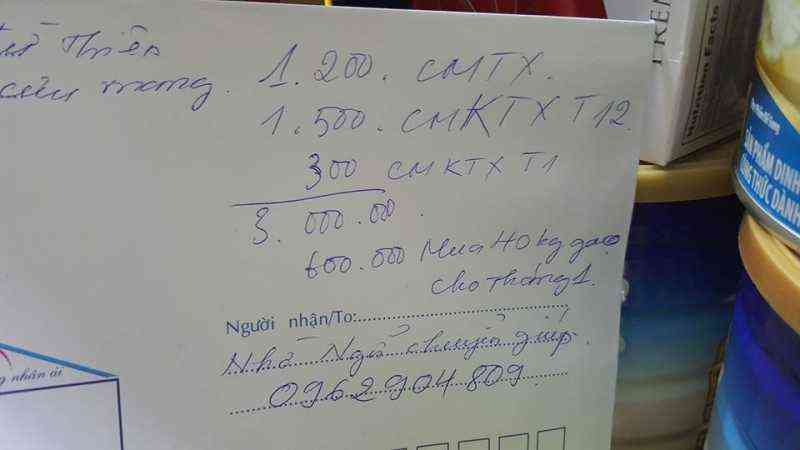 Thiên
1.200. CMTX.
cứu mang.
1.500. CMKTX T12.
300 CMKTX T1
3.000.00.
600.000 Mua 40kg gạo
cho tháng 1.
Người nhận/To:
Nhờ Ngô chuyển giúp.
0962904809.
nhân ái
Nutrition Facts
SẢN PHẨM DINH
CÔNG THỨC DÀNH